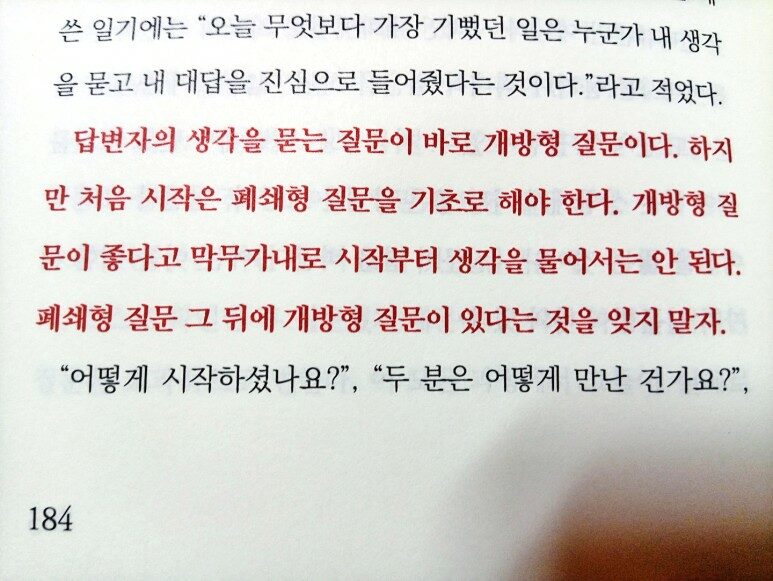 쓴 일기에는 “오늘 무엇보다 가장 기뻤던 일은 누군가 내 생각
을 묻고 내 대답을 진심으로 들어줬다는 것이다.”라고 적었다.
답변자의 생각을 묻는 질문이 바로 개방형 질문이다. 하지
만 처음 시작은 폐쇄형 질문을 기초로 해야 한다. 개방형 질
문이 좋다고 막무가내로 시작부터 생각을 물어서는 안 된다.
폐쇄형 질문 그 뒤에 개방형 질문이 있다는 것을 잊지 말자.
“어떻게 시작하셨나요?”, “두 분은 어떻게 만난 건가요?”,
184